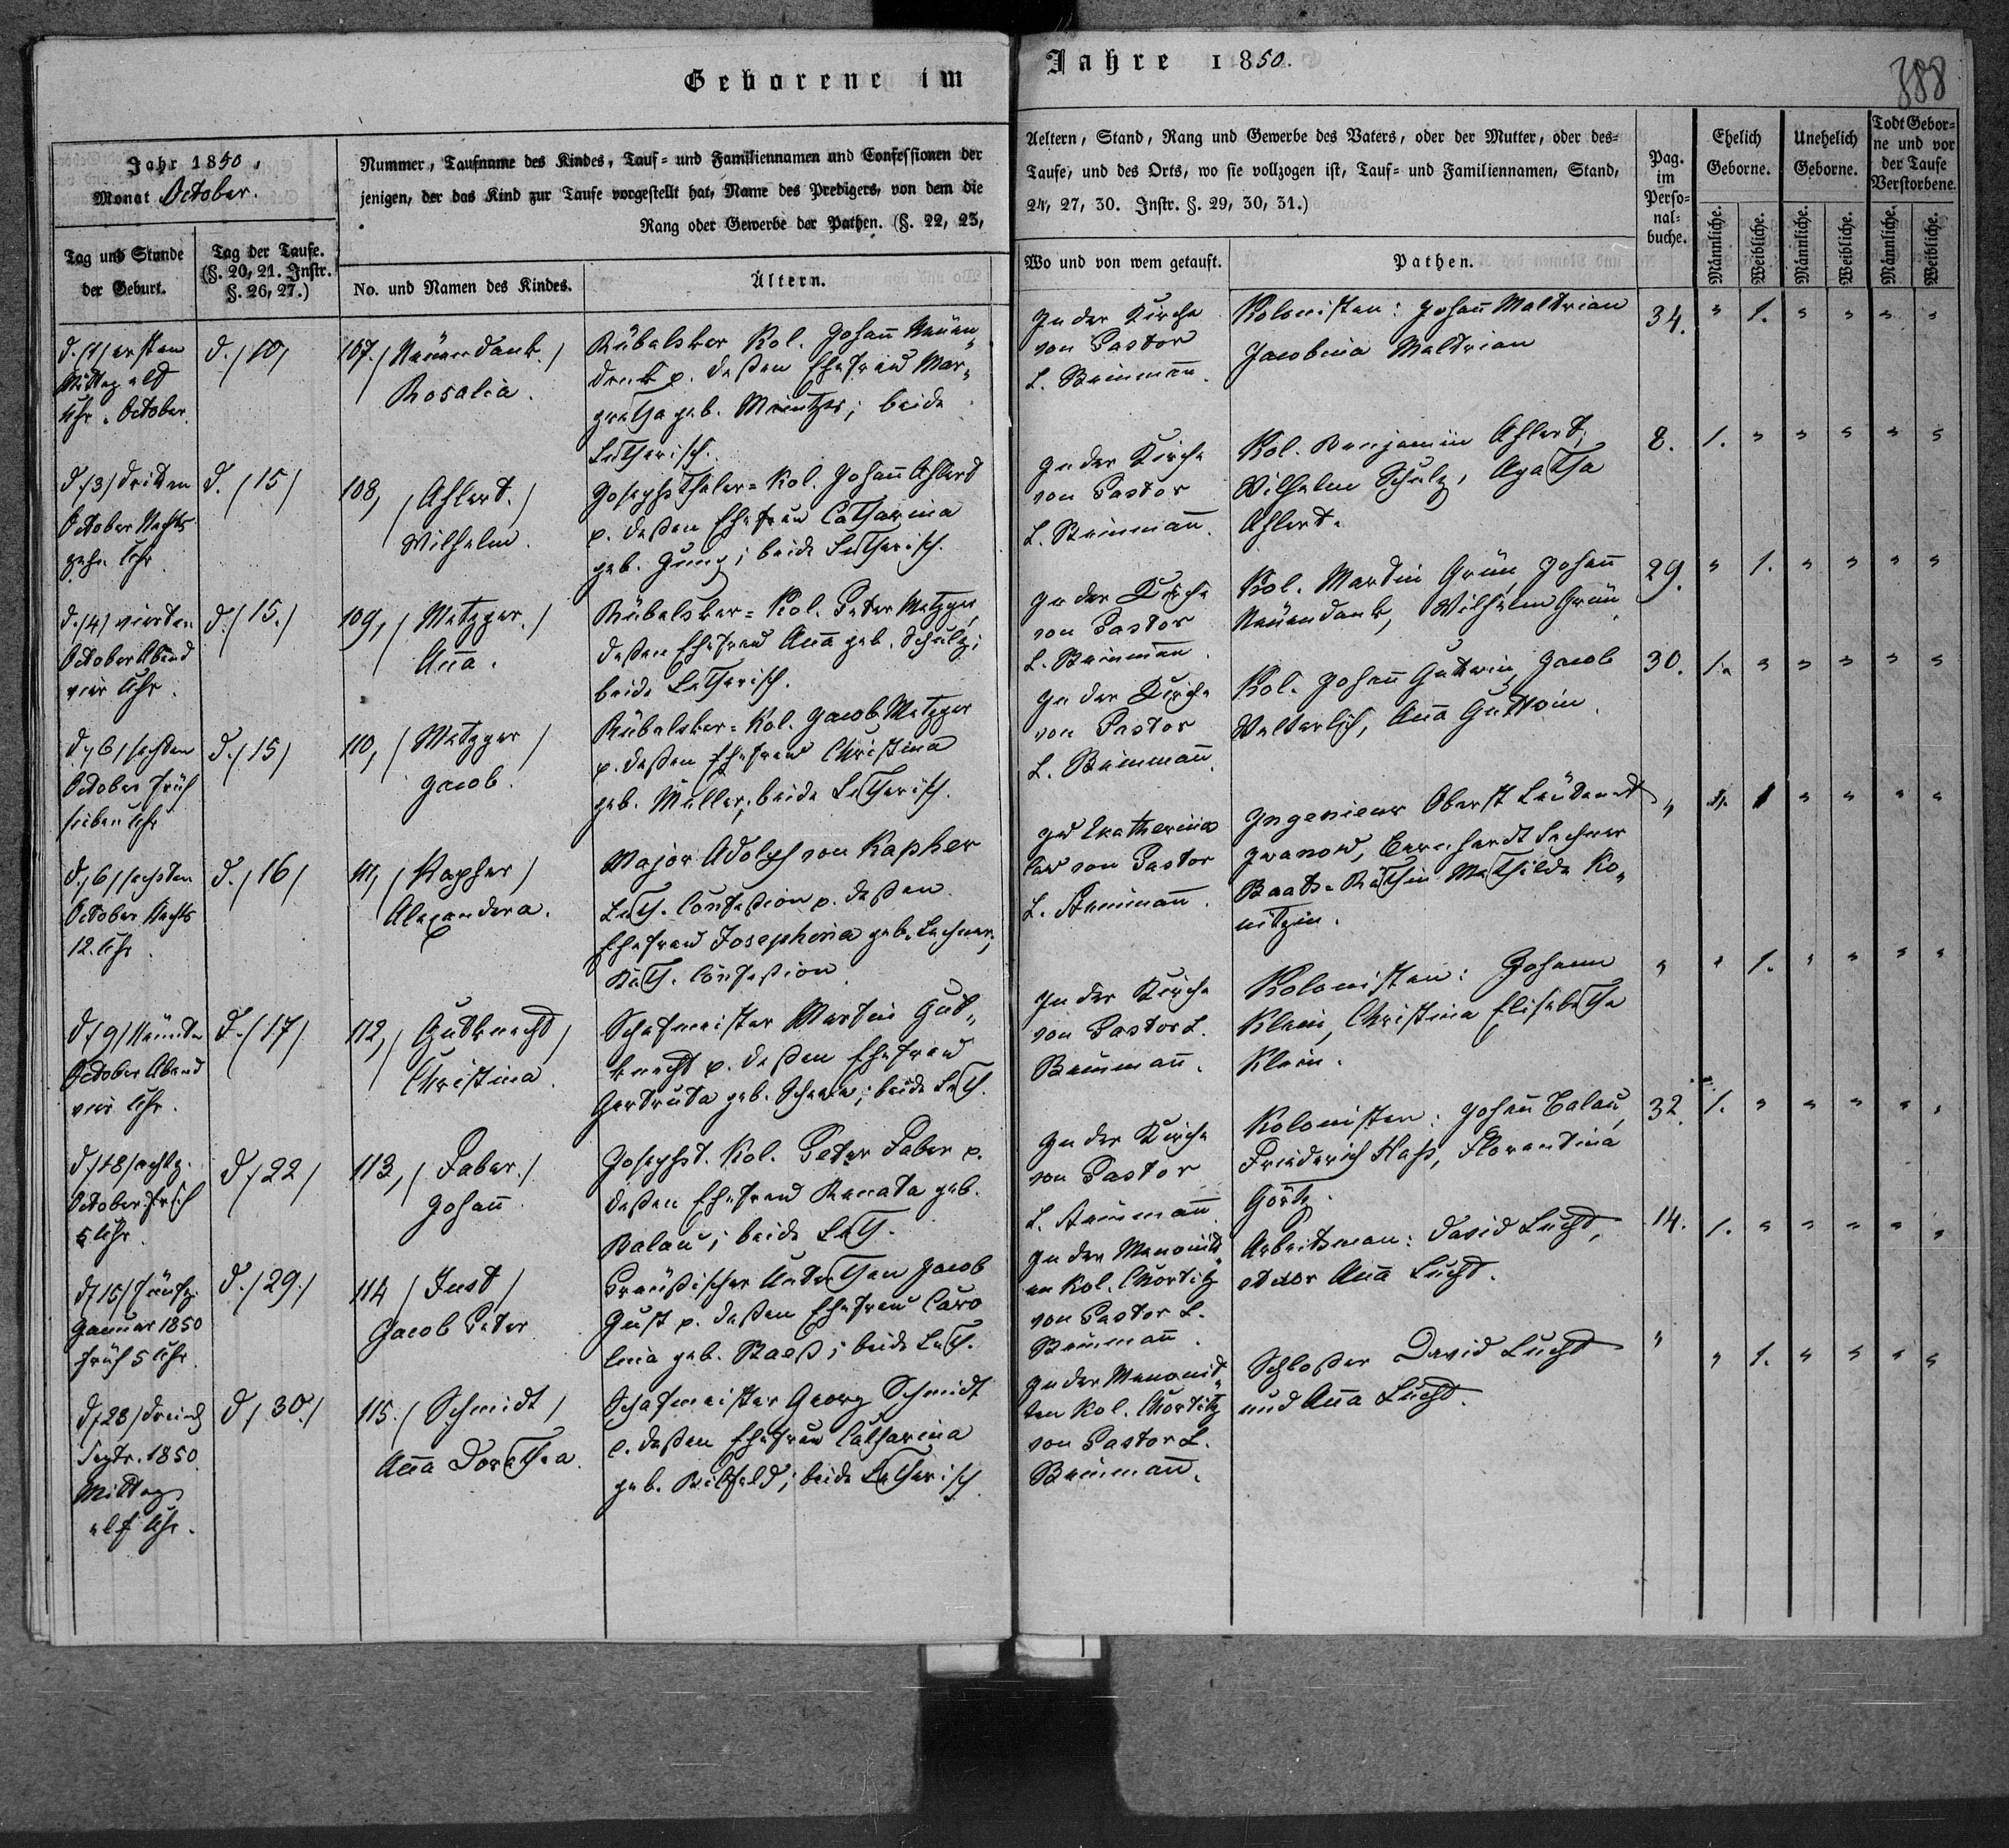 Geborene im
Jahre 1850.
388
Jahr 1850.
Monat October.
Tag und Stunde
der Geburt.
Tag der Taufe.
(§. 20, 21. Instr.
§. 26, 27.)
Nummer, Taufname des Kindes, Tauf- und Familiennamen und Confessionen der
jenigen, der das Kind zur Taufe vorgestellt hat, Name des Predigers, von dem die
Rang oder Gewerbe der Pathen. (§. 22, 23,
No. und Namen des Kindes.
Ältern.
Aeltern, Stand, Rang und Gewerbe des Vaters, oder der Mutter, oder des-
Taufe, und des Orts, wo sie vollzogen ist, Tauf- und Familiennamen, Stand,
24, 27, 30. Instr. §. 29, 30, 31.)
Wo und von wem getauft.
Pathen.
Pag.
im
Perso-
nal-
buche.
Ehelich
Geborne.
Unehelich
Geborne.
Todt Gebor-
ne und vor
der Taufe
Verstorbene.
Männliche.
Weibliche.
Männliche.
Weibliche.
Männliche.
Weibliche.
d. /1/ ersten
Mittag elf
Uhr. October.
d. /10/
107. / Neuendank. /
Rosalia.
Rübalsker Kol. Johann Neuen„
dank p. deßen Ehefrau Mar„
gretha geb. ; beide
Lutherisch.
In der Kirche
von Pastor
L.
Kolonisten: Johann Maldrian
Jacobina Maldrian
34. " 1. " " " "
d. /3/ dritten
October Nachts
zehn Uhr
d. /15/
108, / Ahlert. /
Wilhelm.
Josephsthaler-Kol. Johann Ahlert
p. deßen Ehefrau Catharina
geb. Jung; beide Lutherisch.
In der Kirche
von Pastor
L.
Kol. Benjamin Ahlert,
Wilhelm Schulz, Agatha
Ahlert.
8. 1. " " " " "
d. /4/ vierten
October Abend
vier Uhr.
d. /15./
109, / Metzger. /
Anna.
Rübalsker-Kol. Peter Metzger,
deßen Ehefrau Anna geb. Schulz;
beide Lutherisch.
In der Kirche
von Pastor
L.
Kol. Martin Grün, Johann
Neuendank, Wilhelm Grün.
29. " 1. " " " "
d. /6/ sechsten
October früh
sieben Uhr
d. /15/
110, / Metzger /
Jacob.
Rübalsker-Kol. Jacob Metzger
p. deßen Ehefrau Christina
geb. Müller; beide Lutherisch.
In der Kirche
von Pastor
L.
Kol. Johann Gutwin, Jacob
Welterlich, Anna Guttwin.
30. 1. " " " " "
d. /6/ sechsten
October Nachts
12. Uhr.
d. /16/
111, / Kapher /
Alexandera.
Major Adolph von Kapher
Luth. Confeßion p. deßen
Ehefrau Josephina geb. Lechner,
Kath. Confeßion.
In Ekatherino
law von Pastor
L.
Ingenieur Oberst Leutenant
Iwanow, Bernhardt Lechner
Raats-Räthin Mathilde Ko„
nitzin.
" 1 " " " "
d. /9/ Neunten
October Abend
vier Uhr.
d. /17/
112, / Gutknecht /
Christina.
Schafmeister Martin Gut„
knecht p. deßen Ehefrau
Gertruta geb. ; beide Luth.
In der Kirche
von Pastor L.
Kolonisten: Johann
Klein, Christina Elisabetha
Klein.
" " 1. " " " "
d. /18/ achtz.
October früh
5 Uhr.
d. /22/
113, / Faber. /
Johann.
Josephst. Kol. Peter Faber p.
deßen Ehefrau Renata geb.
Balau; beide Luth.
In der Kirche
von Pastor
L.
Kolonisten: Johann Balau,
Friederich Haß, Florentina
Görtz.
32. 1. " " " " "
d. /15/ fünfz.
Januar 1850
früh 5 Uhr.
d. /29./
114 / Just /
Jacob Peter
Preußischer Unterthan Jacob
Just p. deßen Ehefrau Caro
lina geb. ; beide Luth.
In der Menonit„
en Kol. Chortitz
von Pastor L.
Arbeitsman: David Lucht,
Anna Lucht.
14. 1. " " " " "
d. /23/ dreiundz
Septr. 1850.
Mittag
elf Uhr.
d. /30./
115. / Schmidt /
Anna Dorethea.
Schafmeister Georg Schmidt
p. deßen Ehefrau Catharina
geb. ; beide Lutherisch
In der Menonit„
ten Kol. Chortitz
von Pastor L.
Schloßer David Lucht
und Anna Lucht.
" " 1. " " " "